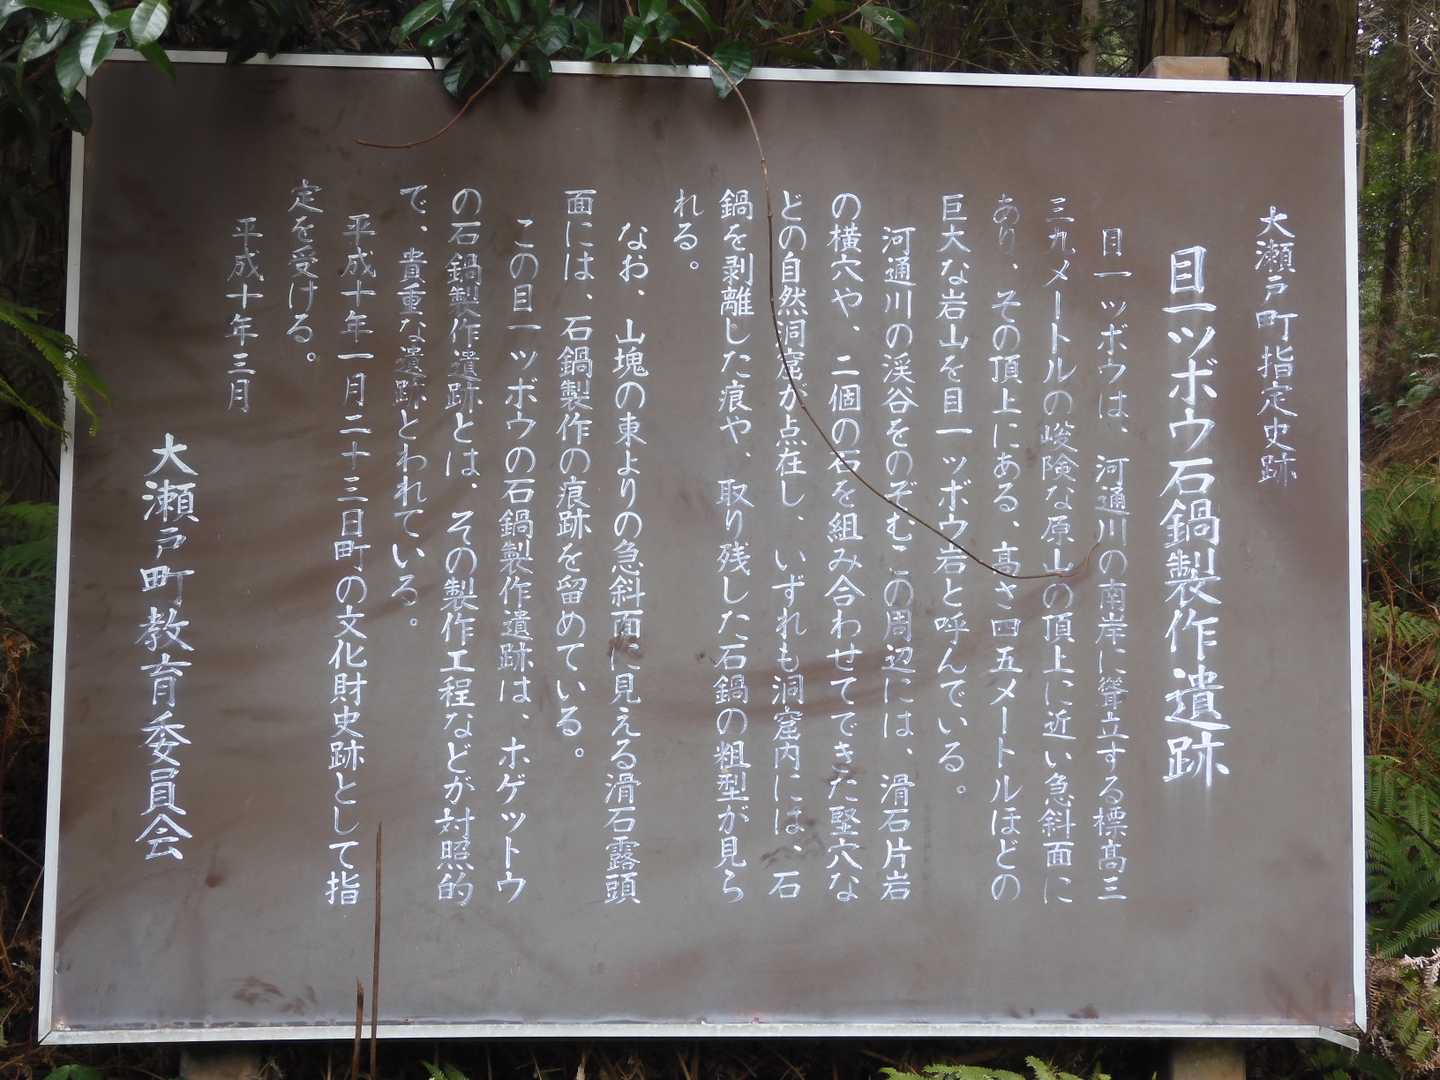 大瀬戸町指定史跡
目一ツボウ石鍋製作遺跡
目一ツボウは、河通川の南岸に聳立する標高三
三九メートルの峻険な原山の頂上に近い急斜面に
あり、その頂上にある、高さ四五メートルほどの
巨大な岩山を目一ツボウ岩と呼んでいる。
河通川の渓谷をのぞむこの周辺には、滑石片岩
の横穴や、二個の石を組み合わせてできた竪穴な
どの自然洞窟が点在し、いずれも洞窟内には、石
鍋を剥離した痕や、取り残した石鍋の粗型が見ら
れる。
なお、山塊の東よりの急斜面に見える滑石露頭
面には、石鍋製作の痕跡を留めている。
この目一ツボウの石鍋製作遺跡は、ホゲットウ
の石鍋製作遺跡とは、その製作工程などが対照的
で、貴重な遺跡とわれている。
平成十年一月二十三日町の文化財史跡として指
定を受ける。
平成十年三月
大瀬戸町教育委員会